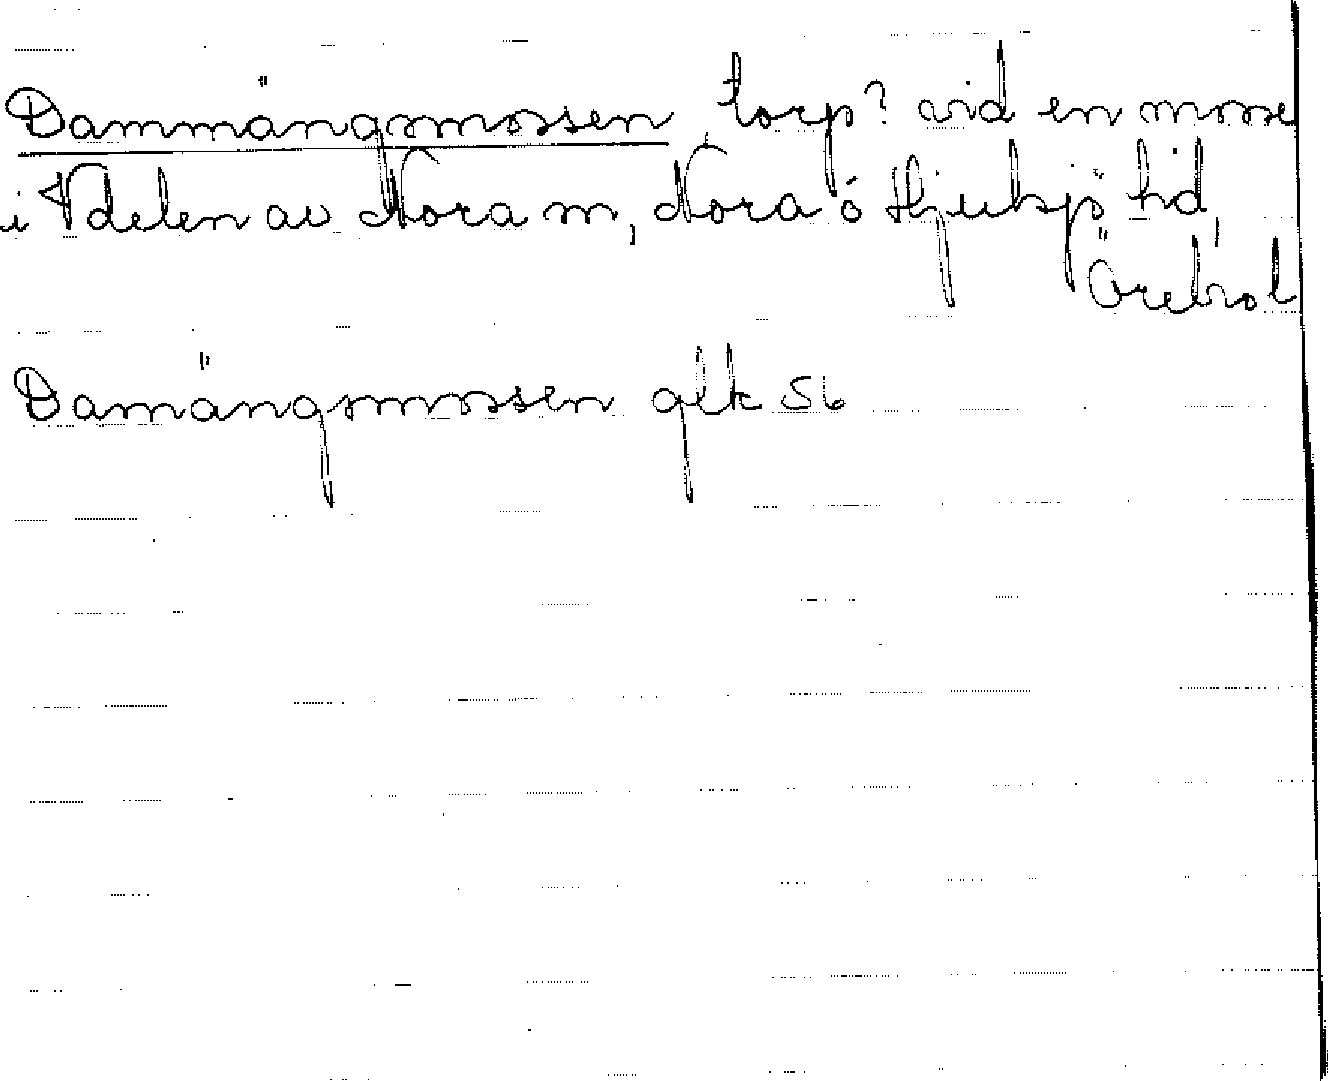 Dammängsmossen torp? vid en mosse
i N delen av Nora m, Nora o Hjulsjö hd,
Örebro l
Damängsmossen glk 56